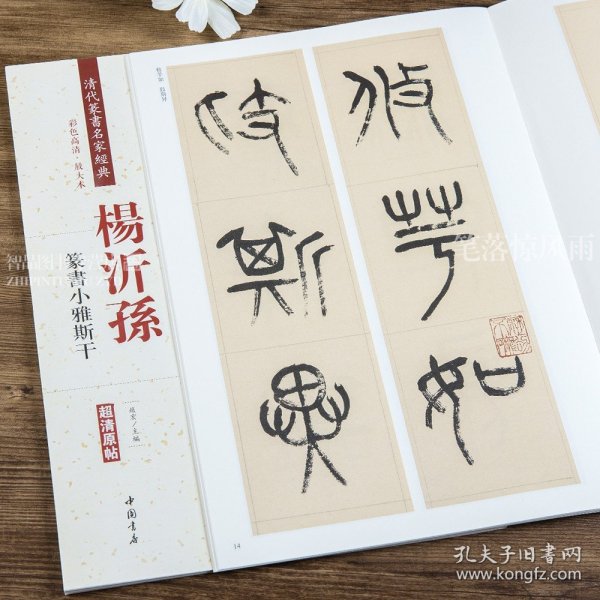 清代篆書名家經典
彩色高清·放大本
楊沂孫
篆書小雅斯干
超清原帖
主編
中国書店
攸芋如
跂斯翼
14
智品图书
ZHIPINTU
笔落惊风雨
孔夫子旧书网
www.kongfz.com